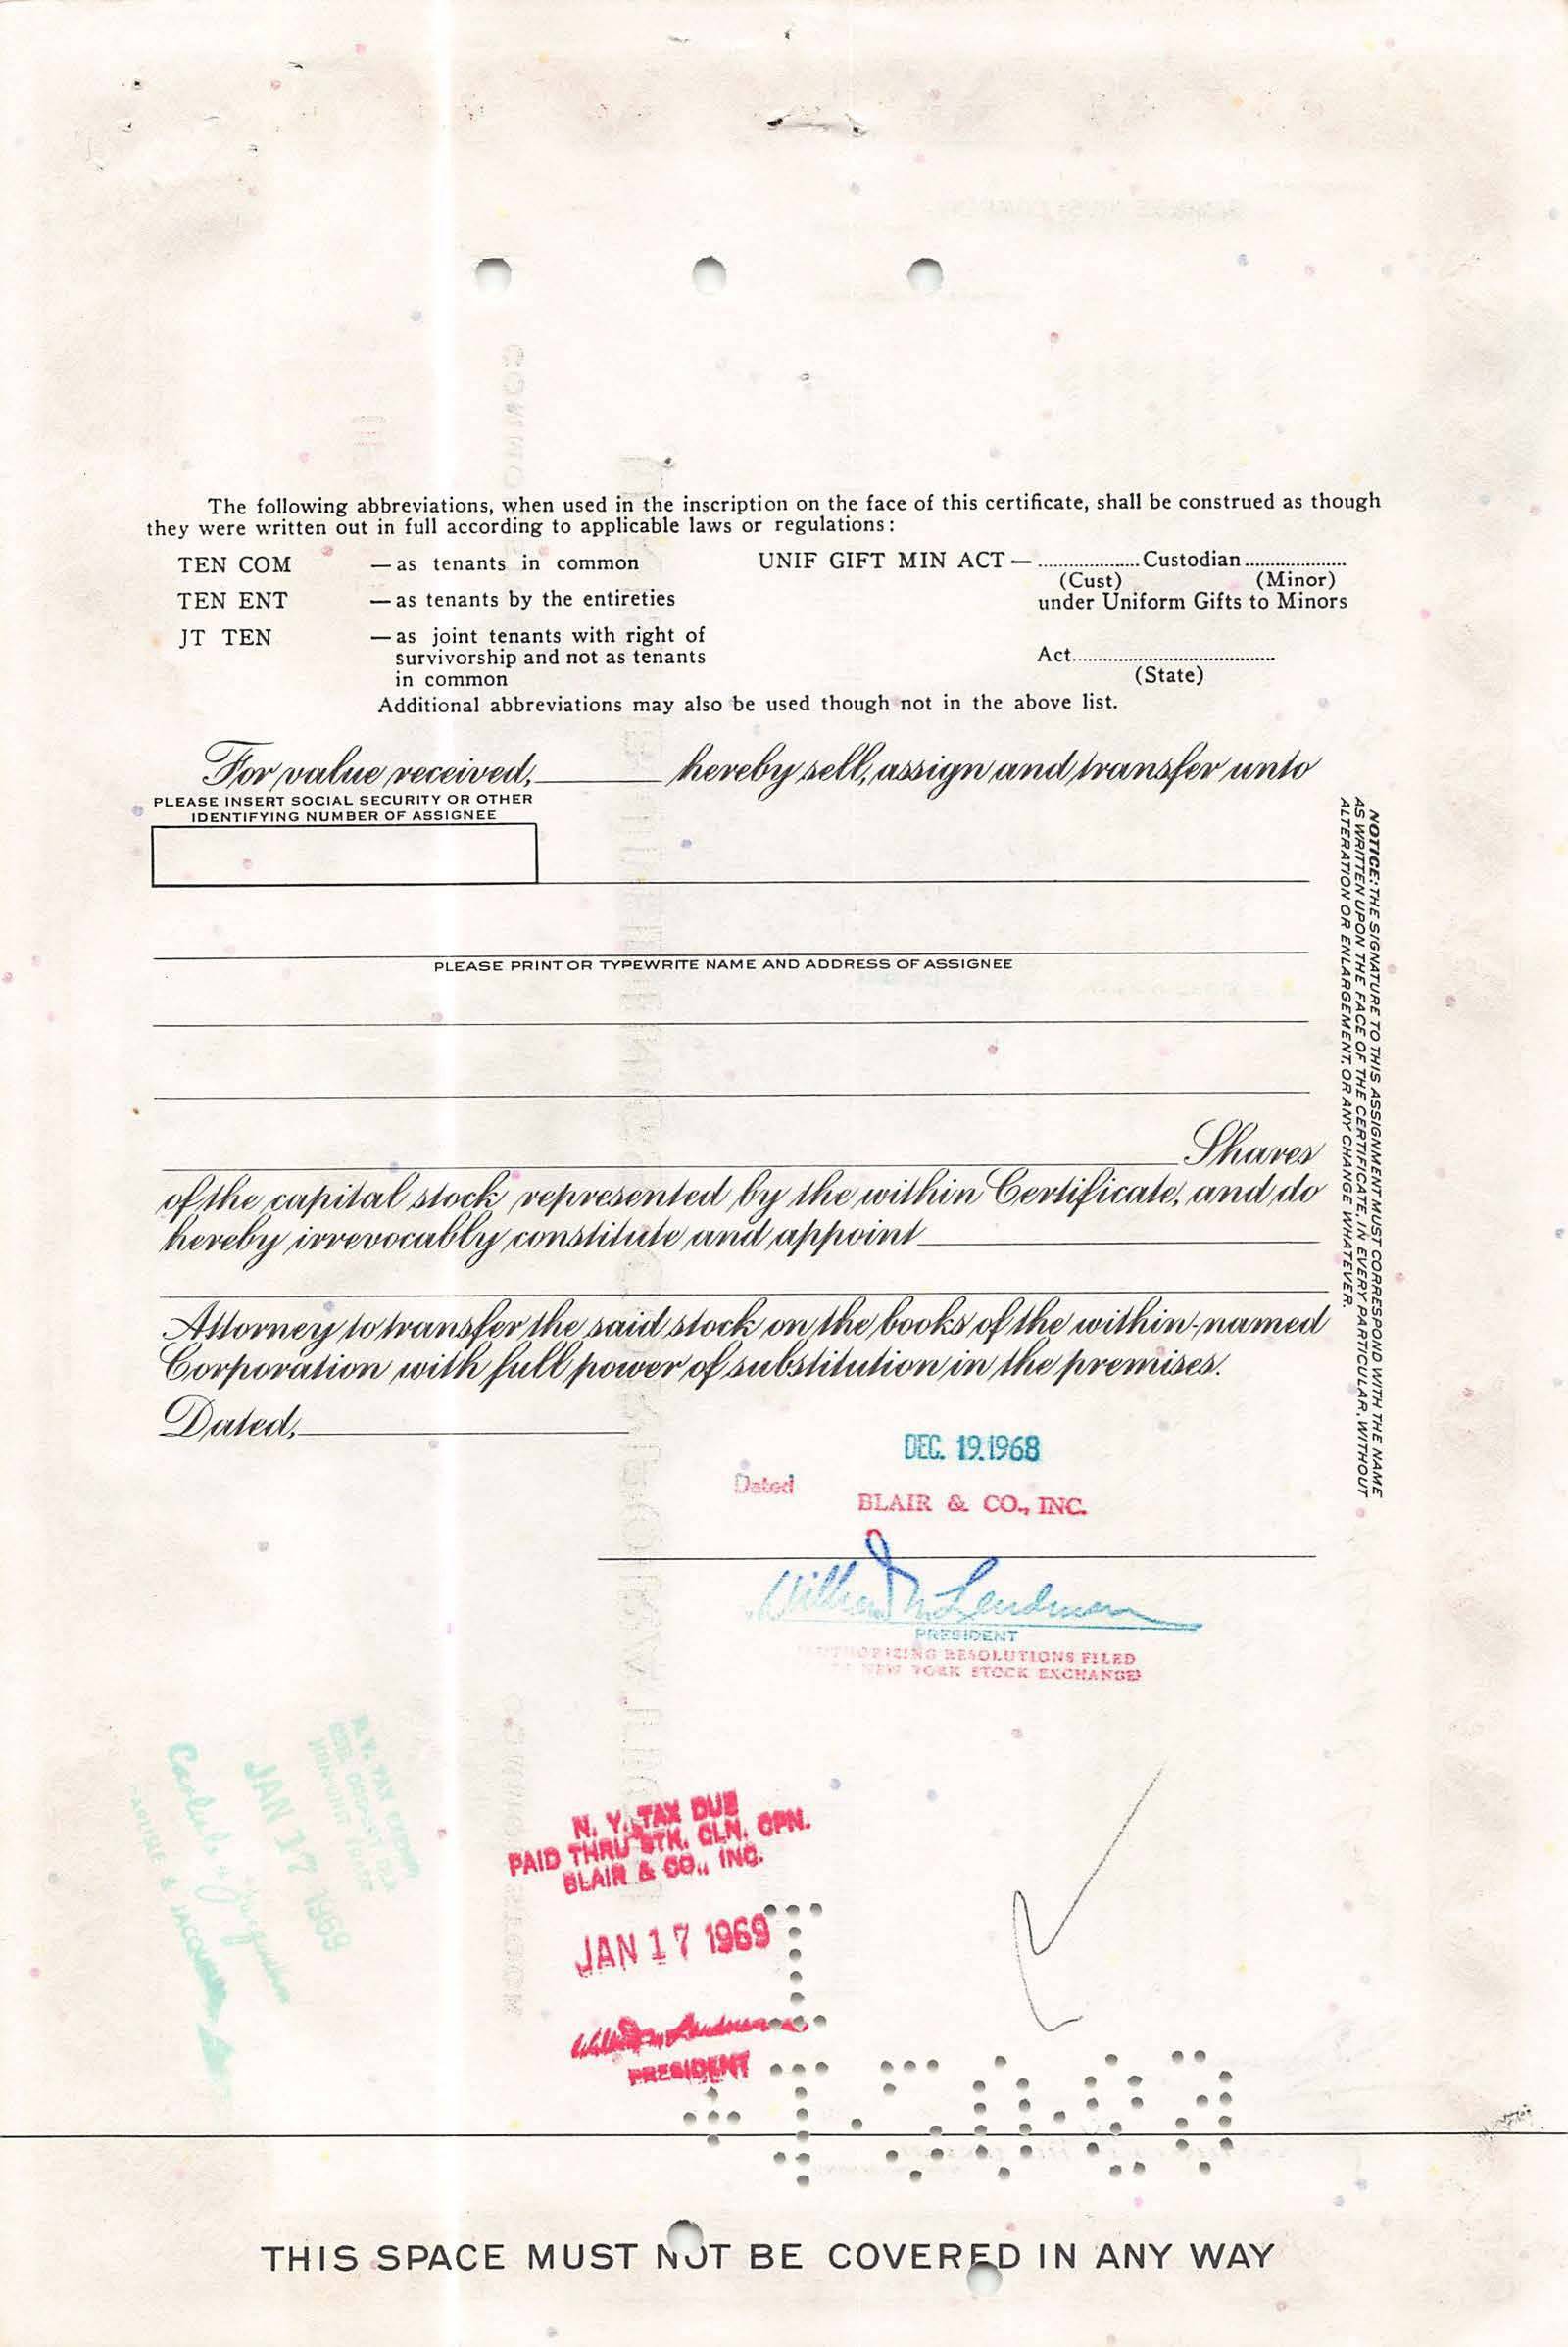 The following abbreviations, when used in the inscription on the face of this certificate, shall be construed as though
they were written out in full according to applicable laws or regulations:
TEN COM — as tenants in common
TEN ENT — as tenants by the entireties
JT TEN — as joint tenants with right of
survivorship and not as tenants
in common
UNIF GIFT MIN ACT — .................... Custodian ....................
(Cust) (Minor)
under Uniform Gifts to Minors
Act........................................
(State)
Additional abbreviations may also be used though not in the above list.
For value received, hereby sell, assign and transfer unto
PLEASE INSERT SOCIAL SECURITY OR OTHER
IDENTIFYING NUMBER OF ASSIGNEE
PLEASE PRINT OR TYPEWRITE NAME AND ADDRESS OF ASSIGNEE
Shares
of the capital stock represented by the within Certificate, and do
hereby irrevocably constitute and appoint
Attorney to transfer the said stock on the books of the within-named
Corporation with full power of substitution in the premises.
Dated,
NOTICE: THE SIGNATURE TO THIS ASSIGNMENT MUST CORRESPOND WITH THE NAME
AS WRITTEN UPON THE FACE OF THE CERTIFICATE, IN EVERY PARTICULAR, WITHOUT
ALTERATION OR ENLARGEMENT, OR ANY CHANGE WHATEVER.
DEC. 19.1968
Dated
BLAIR & CO., INC.
PRESIDENT
RESOLUTIONS FILED
NEW YORK STOCK EXCHANGE
N. Y. TAX DUE
PAID THRU STK. CLN. CPN.
BLAIR & CO., INC.
JAN 17 1969
PRESIDENT
JAN 17 1969
THIS SPACE MUST NOT BE COVERED IN ANY WAY